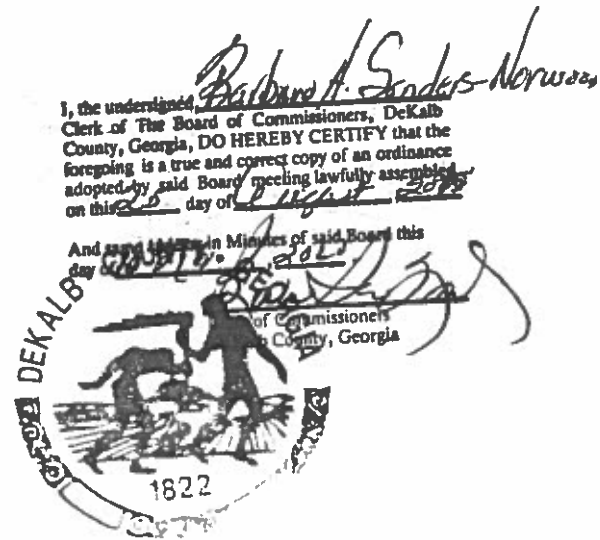 I, the undersigned, Barbara A. Sanders-Norwood
Clerk of The Board of Commissioners, DeKalb
County, Georgia, DO HEREBY CERTIFY that the
foregoing is a true and correct copy of an ordinance
adopted by said Board meeting lawfully assembled
on this day of August
And same in Minutes of said Board this
day of
of Commissioners
County, Georgia
DEKALB
1822